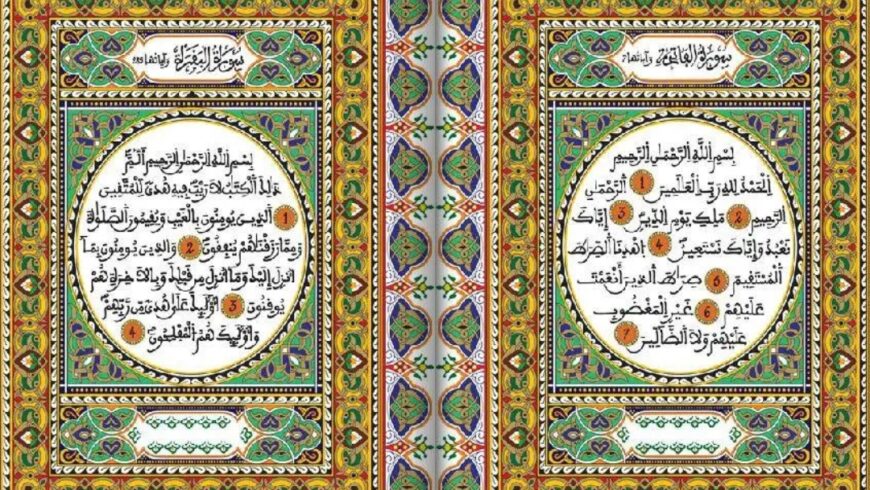 سورة الفاتحة وآياتها 7
بِسْمِ اللَّهِ الرَّحْمَٰنِ الرَّحِيمِ
الْحَمْدُ لِلهِ رَبِّ الْعَٰلَمِينَ 1 الرَّحْمَٰنِ
الرَّحِيمِ 2 مَلِكِ يَوْمِ الدِّينِ 3 إِيَّاكَ
نَعْبُدُ وَإِيَّاكَ نَسْتَعِينُ 4 اهْدِنَا الصِّرَٰطَ
الْمُسْتَقِيمَ 5 صِرَٰطَ الذِينَ أَنْعَمْتَ
عَلَيْهِمْ 6 غَيْرِ الْمَغْضُوبِ
عَلَيْهِمْ وَلَا الضَّالِّينَ 7
سورة البقرة وآياتها
بِسْمِ اللَّهِ الرَّحْمَٰنِ الرَّحِيمِ أَلَمِّ
ذَٰلِكَ الْكِتَٰبُ لَا رَيْبَ فِيهِ هُدًى لِلْمُتَّقِينَ
1 الذِينَ يُومِنُونَ بِالْغَيْبِ وَيُقِيمُونَ الصَّلَوٰةَ
وَمِمَّا رَزَقْنَٰهُمْ يُنفِقُونَ 2 وَالذِينَ يُومِنُونَ بِمَا
أُنزِلَ إِلَيْكَ وَمَا أُنزِلَ مِن قَبْلِكَ وَبِالَاخِرَةِ هُمْ
يُوقِنُونَ 3 أُوْلَٰئِكَ عَلَىٰ هُدًى مِّن رَّبِّهِمْ
وَأُوْلَٰئِكَ هُمُ الْمُفْلِحُونَ 4